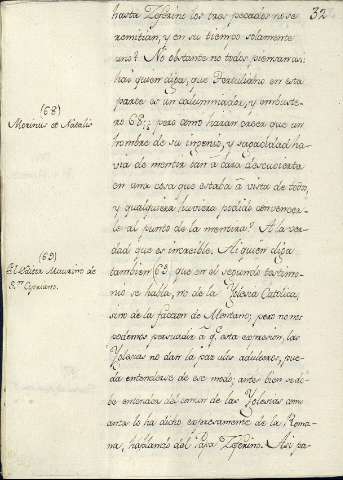 32
hasta Zeferino los tres pecados no se
remitian, y en su tiempo solamente
uno? No obstante no todos piensan asi:
hai quien diga, que Tertuliano en esta
parte es un calumniador, y embuste-
ro 68; pero como haran creer que un
(68)
Morinus et Natalis
hombre de su ingenio, y sagacidad ha-
via de mentir tan a cara descuvierta
en una cosa que estaba a vista de todos,
y qualquiera huviera podido convencer-
le al punto de la mentira? A la ver-
dad que es increible. Ai quien diga
(69)
El Editor Maurino de
S.n Cypriano.
tambien 69 que en el segundo testimo-
nio se habla, no de la Yglesia Catolica,
sino de la faccion de Montano; pero no nos
podemos persuadir à q.e esta expresion, las
Yglesias no dan la paz à los adulteros, pue-
da entenderse de ese modo, antes bien se de-
be entender del comun de las Yglesias como
antes lo ha dicho expresamente de la Roma-
na, hablando del Papa Zeferino. Asi pa-